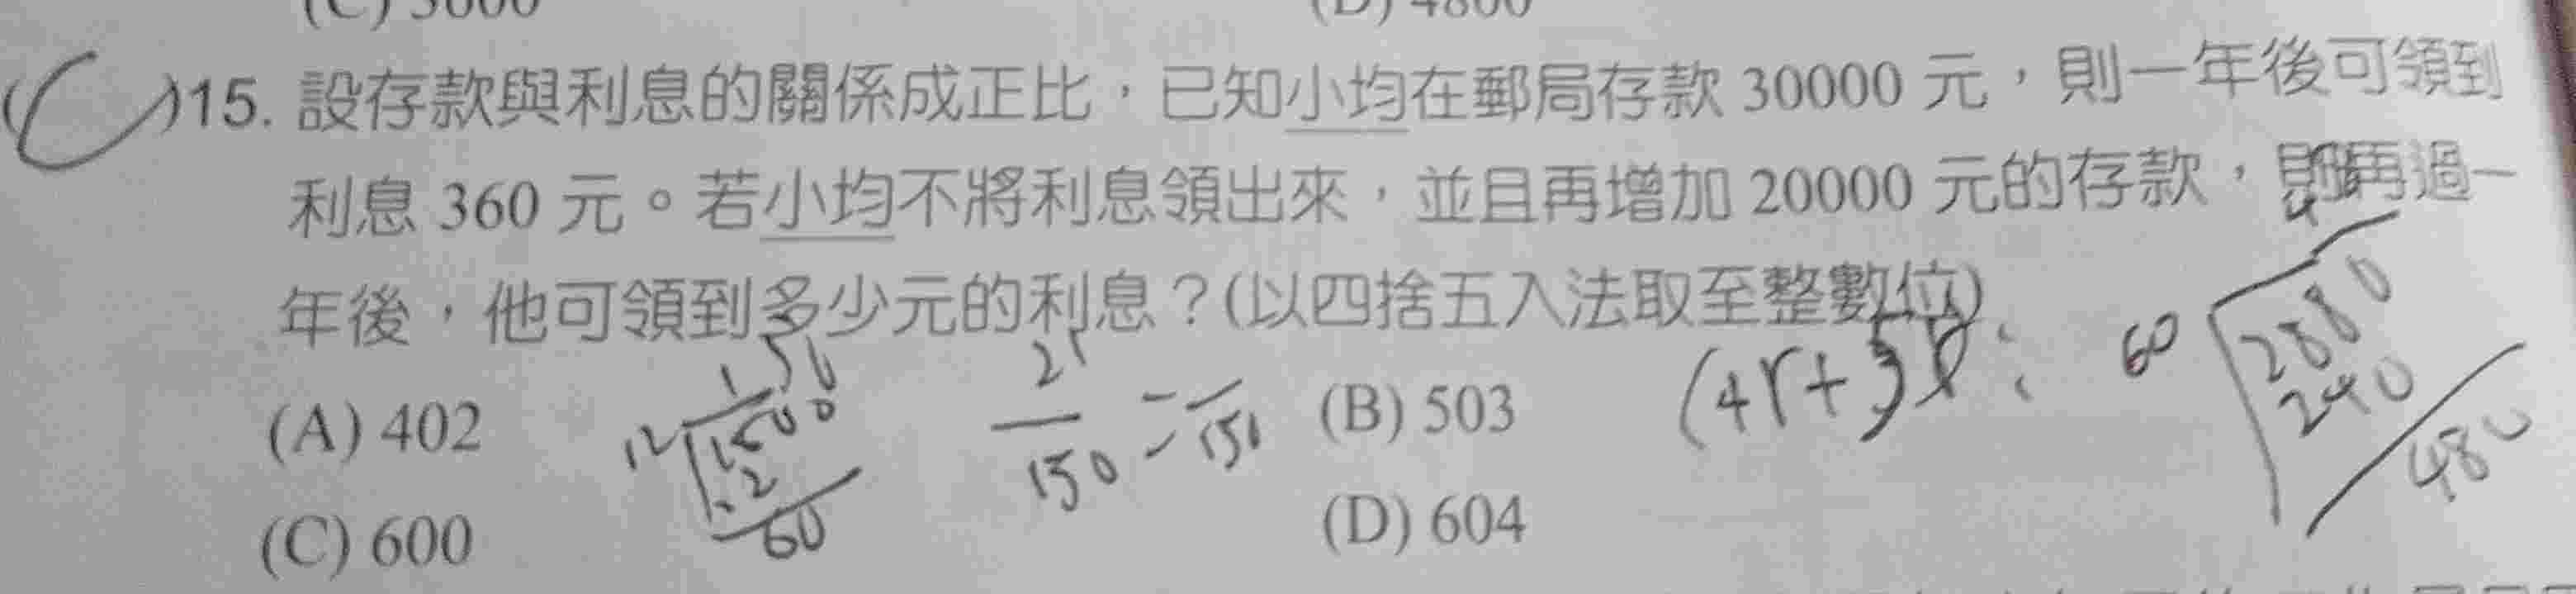 (C) 3600
(D) 4800
(C)15. 設存款與利息的關係成正比，已知小均在郵局存款 30000 元，則一年後可領到
利息 360 元。若小均不將利息領出來，並且再增加 20000 元的存款，則再過一
年後，他可領到多少元的利息？(以四捨五入法取至整數位)
(A) 402
(B) 503
(C) 600
(D) 604
12
60
25
150
=
60
2880
240
480